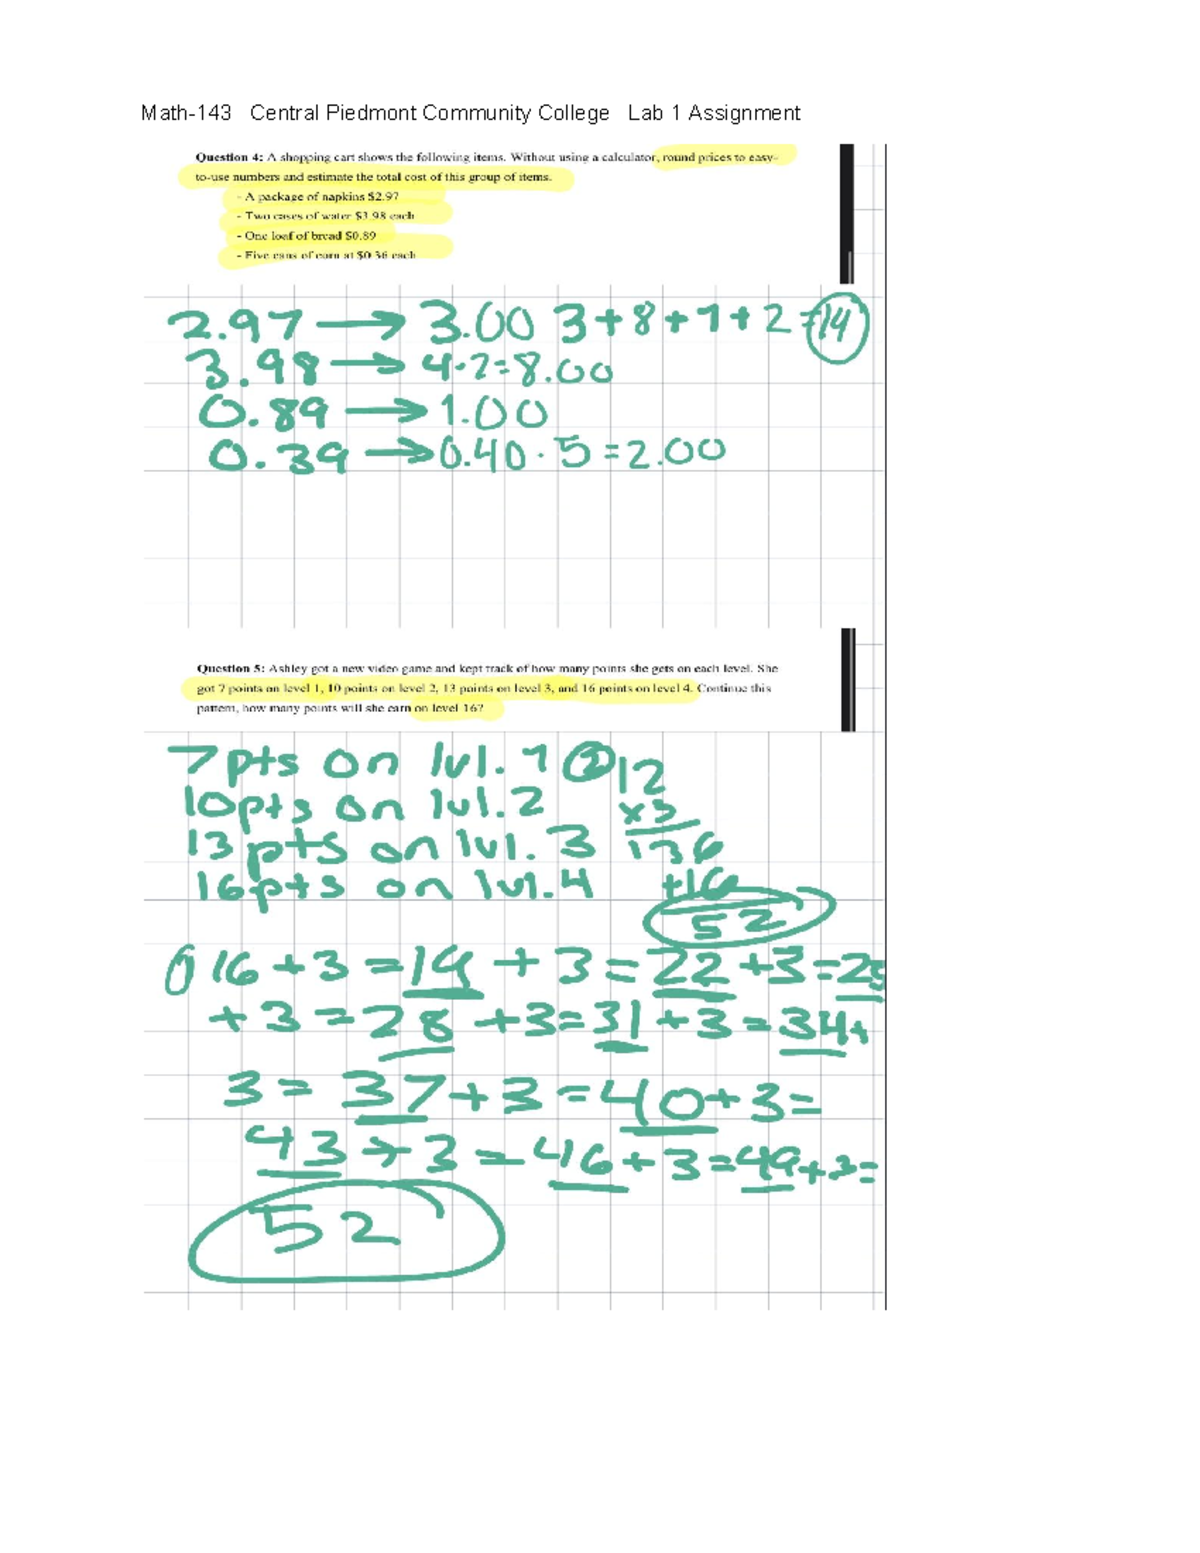 Math-143 Central Piedmont Community College Lab 1 Assignment
Question 4: A shopping cart shows the following items. Without using a calculator, round prices to easy-
to-use numbers and estimate the total cost of this group of items.
- A package of napkins $2.97
- Two cases of water $3.98 each
- One loaf of bread $0.89
- Five cans of corn at $0.36 each
2.97 → 3.00 3+8+1+2=14
3.98 → 4·2=8.00
0.89 → 1.00
0.39 → 0.40·5=2.00
Question 5: Ashley got a new video game and kept track of how many points she gets on each level. She
got 7 points on level 1, 10 points on level 2, 13 points on level 3, and 16 points on level 4. Continue this
pattern, how many points will she earn on level 16?
7pts on lvl. 1 ② 12
10pts on lvl. 2 x3
13 pts on lvl. 3 36
16pts on lvl. 4 +16
52
16+3=19+3=22+3=25
+3=28+3=31+3=34+
3=37+3=40+3=
43+3=46+3=49+3=
52